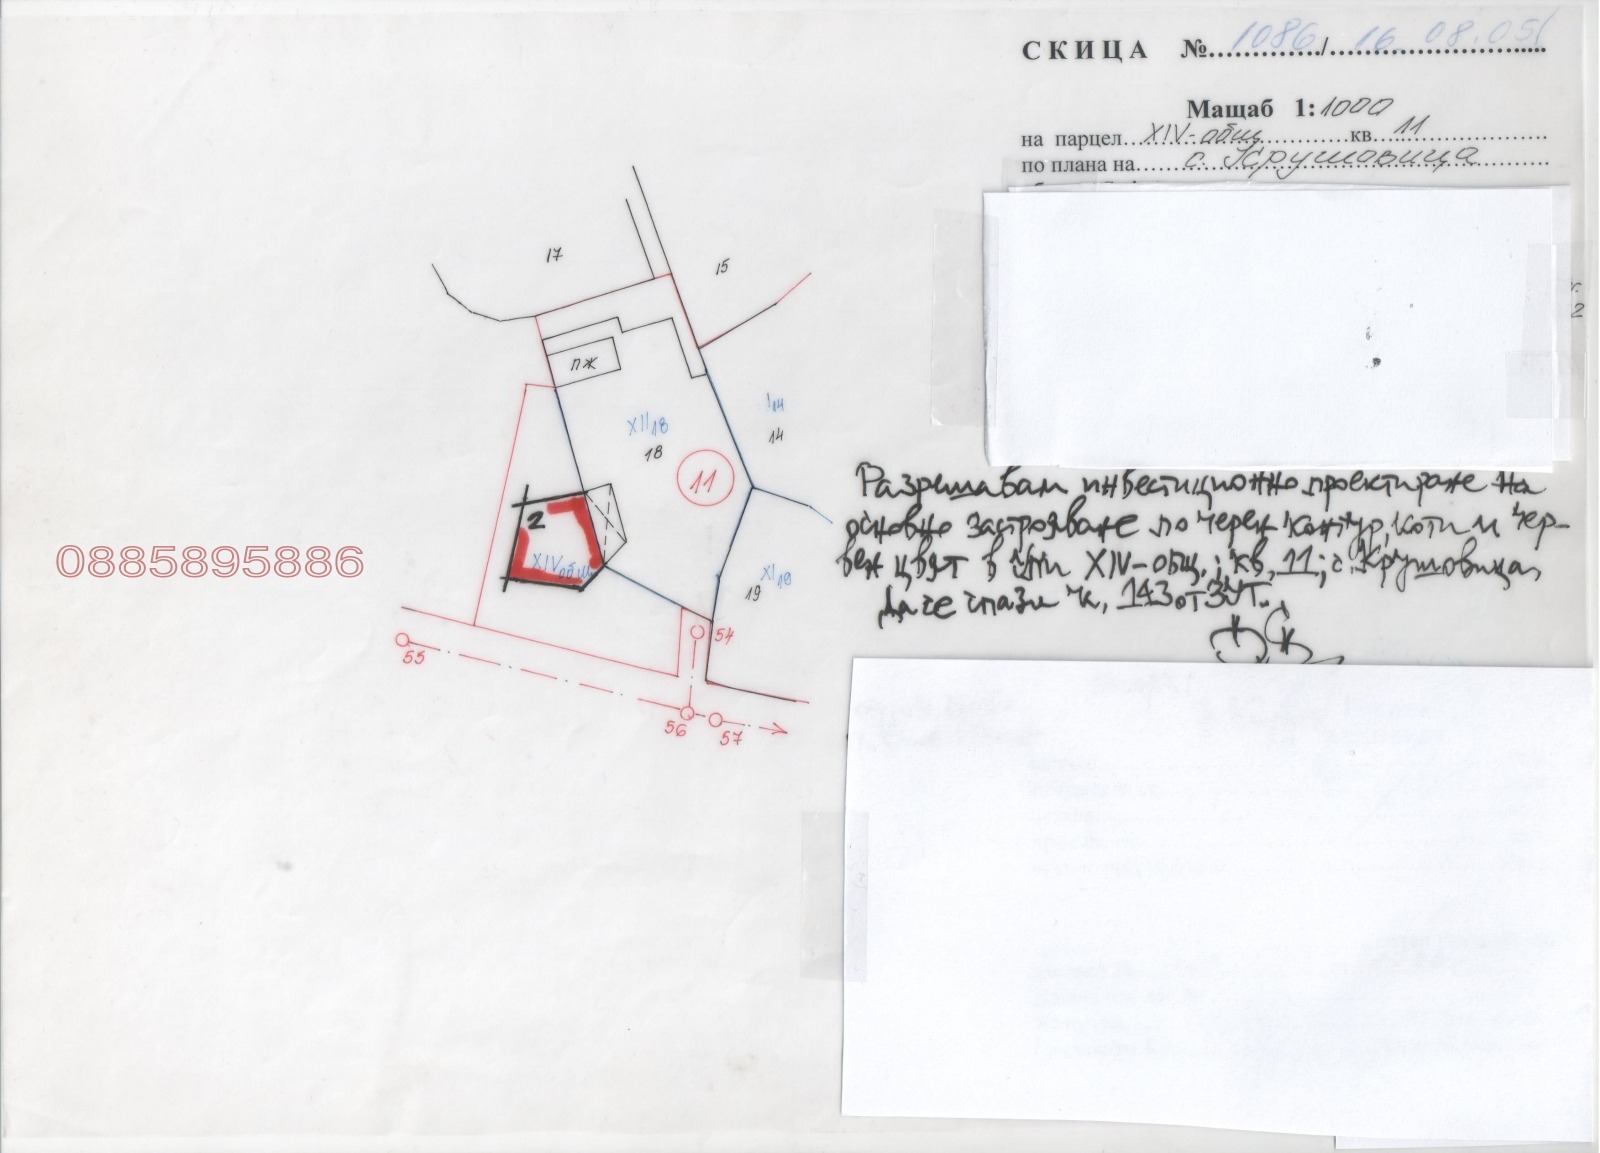 СКИЦА №1086/16.08.05
Мащаб 1:1000
на парцел XIV-общ кв 11
по плана на с. Крушовица
17
15
ПЖ
I14
XII18
14
18
11
Разрешавам инвестиционно проектиране на
основно застрояване по черен контур, коти и чер-
вен цвят в УПИ XIV-общ.; кв. 11; с. Крушовица,
Да се спази чл. 143 от ЗУТ.
2
XIV общ
0885895886
XI19
19
54
55
56
57
2